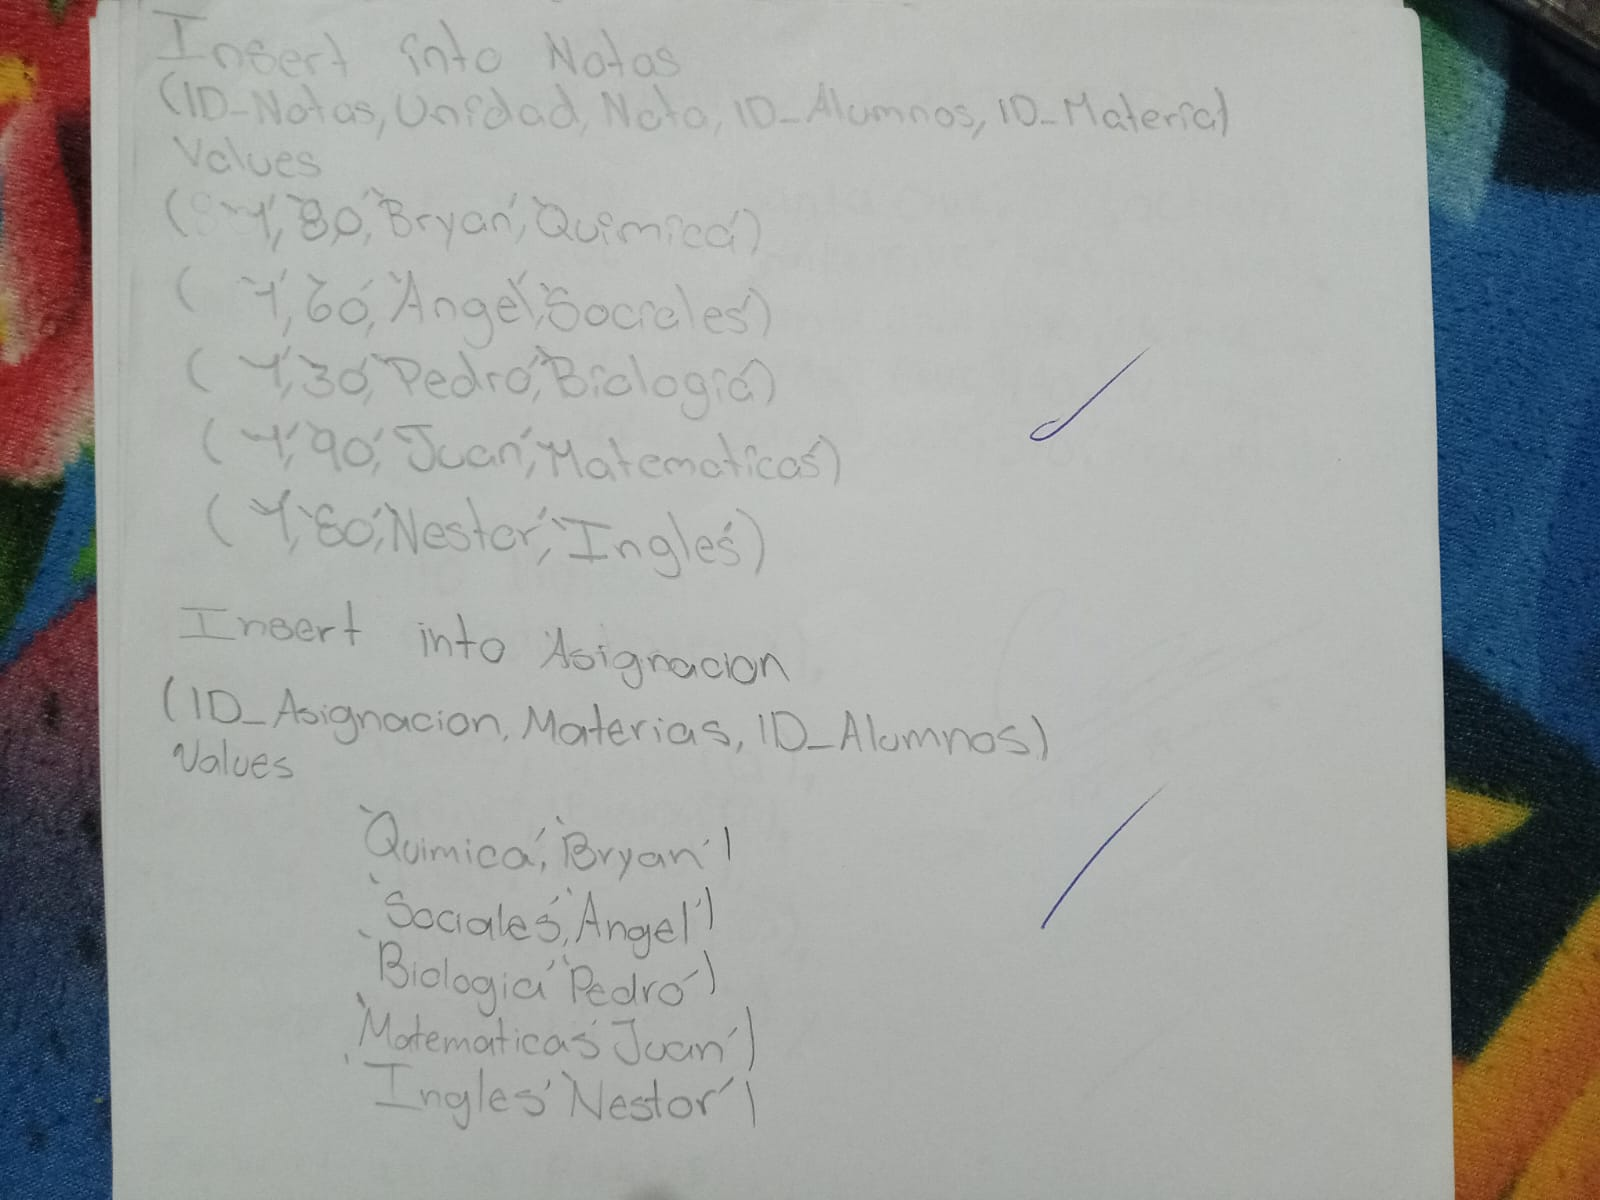 Insert into Notas
(ID_Notas, Unidad, Nota, ID_Alumnos, ID_Material
Values
( '1', '80', 'Bryan', 'Quimica')
( '1', '60', 'Angel', 'Sociales')
( '1', '30', 'Pedro', 'Biologia')
( '1', '90', 'Juan', 'Matematicas')
( '1', '80', 'Nestor', 'Ingles')
Insert into Asignacion
(ID_Asignacion, Materias, ID_Alumnos)
Values
'Quimica', 'Bryan')
'Sociales', 'Angel')
'Biologia' 'Pedro')
'Matematicas' Juan')
'Ingles' 'Nestor')